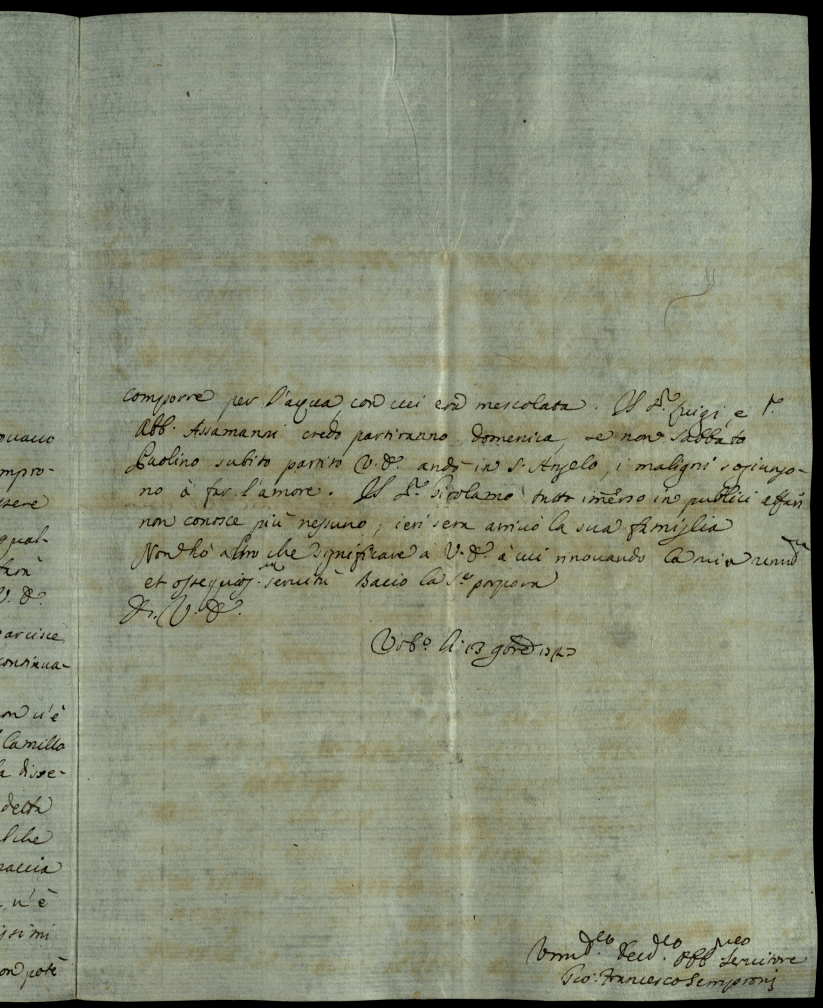 ovauo
mpro-
ssere
qual-
farà
V. E.
parisce
continua-
on v'è
Camillo
la disse-
detta
lche
naccia
n'è
issimi
on potè
comporre per l'acqua, con cui era mescolata. Il S.r Luigi, e l'
Abb. Assamansi credo partiranno domenica, se non Sabbato
Paolino subito partito V. E. andò in S. Angelo, i maligni sogiungo-
no à far l'amore. Il S.r Girolamo tutto immerso in publici affari
non conosce più nessuno, ieri sera arrivò la sua famiglia
Non hò altro che significare à V. E. à cui rinovando la mia
et ossequios.ma servitù Bacio la S. porpora
Di V. E.
Urb.o li 13 9bre
Um.mo Dev.mo Obb. Servitore
Gio: Francesco Sempronj